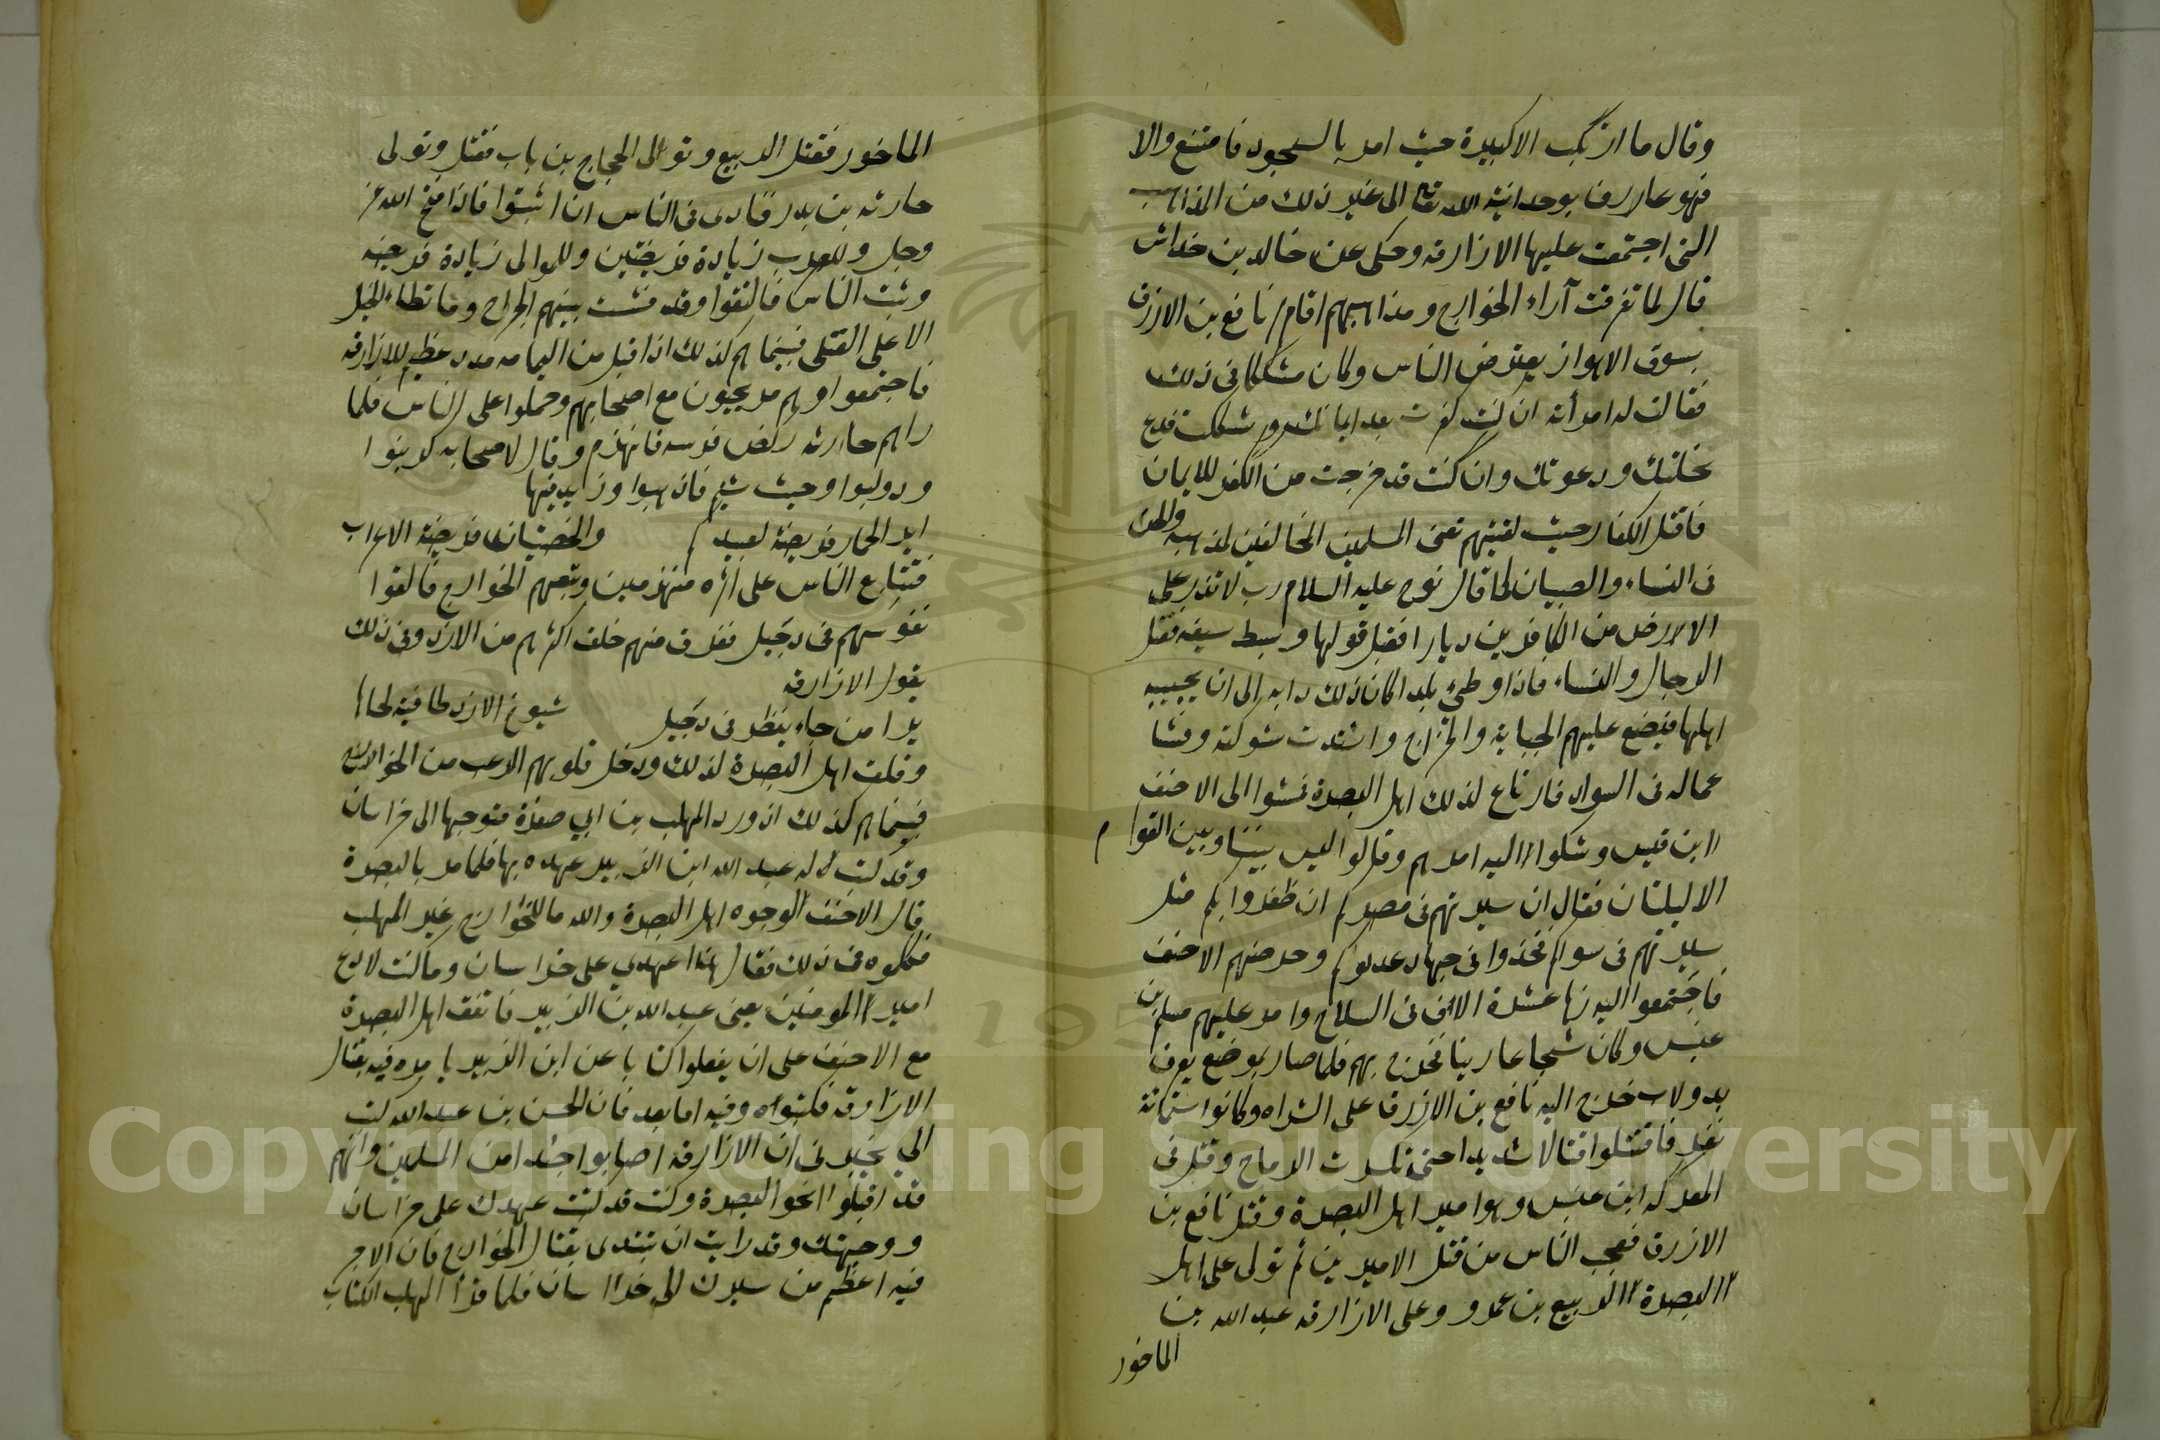 وقال ما ارتكب الا كبيرة حيث امر بالسجود فامتنع والا
فهو عارف بوحدانية الله تعالى الى غير ذلك من المذاهب
التى اجتمعت عليها الازارقه وحكى عن خالد بن خداش
قال لما تفرقت آراء الخوارج ومذاهبهم اقام نافع بن الازرق
بسوق الاهواز يعترض الناس وكان متشككا فى ذلك
فقالت له امرأته ان كنت كفرت بعد ايمانك وشككت فدع
نحلتك ودعوتك وان كنت قد خرجت من الكفر للايمان
فاقتل الكفار حيث لقيتهم تعنى المسلمين المخالفين لمذهبه والحن
فى النساء والصبيان كما قال نوح عليه السلام رب لا تذر على
الارض من الكافرين ديارا فقبل قولها وبسط سيفه فقتل
الرجال والنساء فاذا وطئ بلدا كان ذلك دابه الى ان يجيبه
اهلها فيضع عليهم الجباية والخراج واشتدت شوكته وفشا
عماله فى السواد فارتاع لذلك اهل البصرة فمشوا الى الاحنف
ابن قيس وشكوا اليه امرهم وقالوا ليس بيننا وبين القوم
الا ليلتان فقال ان سيرتهم فى مصركم ان ظفروا بكم مثل
سيرتهم فى سوادكم فخذوا فى جهاد عدوكم وحرضهم الاحنف
فاجتمعوا اليه زها عشرة الاف فى السلاح وامر عليهم مسلم بن
عبس وكان شجاعا دينا فخرج بهم فلما صار بموضع يعرف
بدولاب خرج اليه نافع بن الازرق على الشراه وكانوا ستمائة
نفر فاقتتلوا قتالا شديدا حتى تكسرت الرماح وقتل فى
المعركه ابن عبس وهو امير اهل البصرة وقتل نافع بن
الازرق فعجب الناس من قتل الاميرين ثم تولى على اهل
البصرة الربيع بن عمرو وعلى الازارقه عبد الله بن
الماخور
الماخور فقتل الربيع وتوالى الحجاج بن باب فقتل وتولى
حارثه بن بدر فنادى فى الناس ان اثبتوا فاذا فتح الله عز
وجل وللعرب زيادة فريضتين وللموالى زيادة فريضه
وثبت الناس فالتقوا وقد فشت بينهم الجراح وما تطاء الخيل
الا على القتلى فبينما هم كذلك اذ اقبل من اليمامه مدد عظيم للازارقه
فاجتمعوا وهم مريحون مع اصحابهم وحملوا على الناس فلما
راهم حارثه ركض فرسه فانهزم وقال لاصحابه كرنبوا
ودولبوا وحيث شيتم فاذهبوا وزيد فيها
اير الحمار فريضة لعبيدكم والخصيتان فريضة الاعراب
فتتابع الناس على اثره منهزمين وتبعهم الخوارج فالقوا
نفوسهم فى دجيل فغرق منهم خلق اكثرهم من الازد وفى ذلك
يقول الازارقه
يرا من جاء ينظر فى دجيل شيوخ الازد طافية لحاها
وقلت اهل البصرة لذلك ودخل قلوبهم الرعب من الخوارج
فبينما هم كذلك اذ ورد المهلب بن ابي صفرة متوجها الى خراسان
وقد كتب له عبد الله ابن الزبير عهده بها فلما مر بالبصرة
قال الاحنف لوجوه اهل البصرة والله ما للخوارج غير المهلب
فكلموه فى ذلك فقال هذا عهدي على خراسان وما كنت لادع
امير المومنين يعنى عبد الله بن الزبير فاتفق اهل البصرة
مع الاحنف على ان يفعلوا كتابا عن ابن الزبير يامره فيه بقتال
الازارقه فكتبوه وفيه اما بعد فان الحسن بن عبد الله كتب
الي يخبرنى ان الازارقه اصابوا جندا من المسلمين وانهم
قد اقبلوا نحو البصرة وكنت قد كتبت عهدك على خراسان
ووجهتك وقد رايت ان تبتدى بقتال الخوارج فان الاجر
فيه اعظم من سيرك الى خراسان فلما قرا المهلب الكتاب
Copyright © King Saud University
195